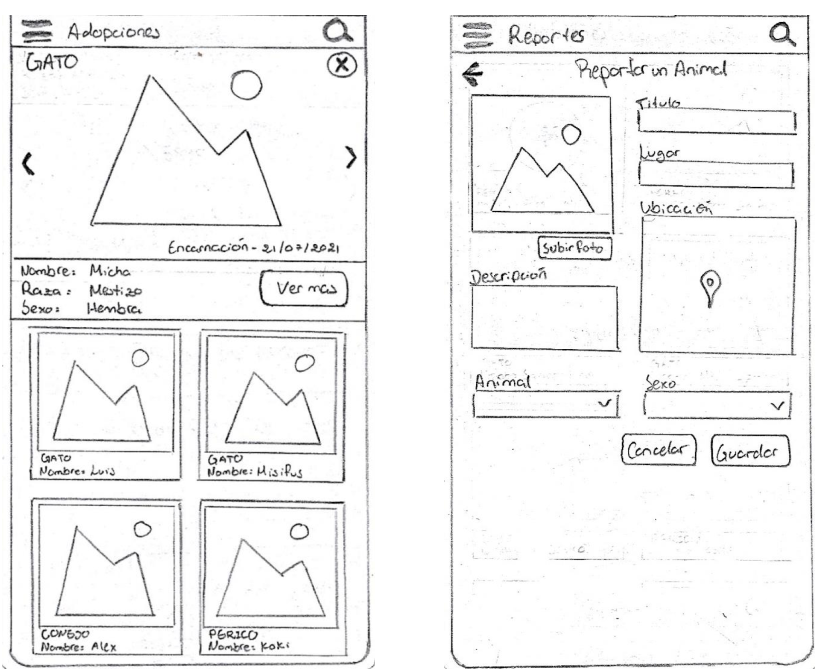 Adopciones
GATO
Encarnación - 21/07/2021
Nombre: Micha
Raza: Mestizo
Sexo: Hembra
Ver mas
GATO
Nombre: Luis
GATO
Nombre: Misifus
CONEJO
Nombre: Alex
PERICO
Nombre: Koki
Reportes
Reportar un Animal
Titulo
Lugar
Ubicación
Subir foto
Descripción
Animal
Sexo
Cancelar
Guardar